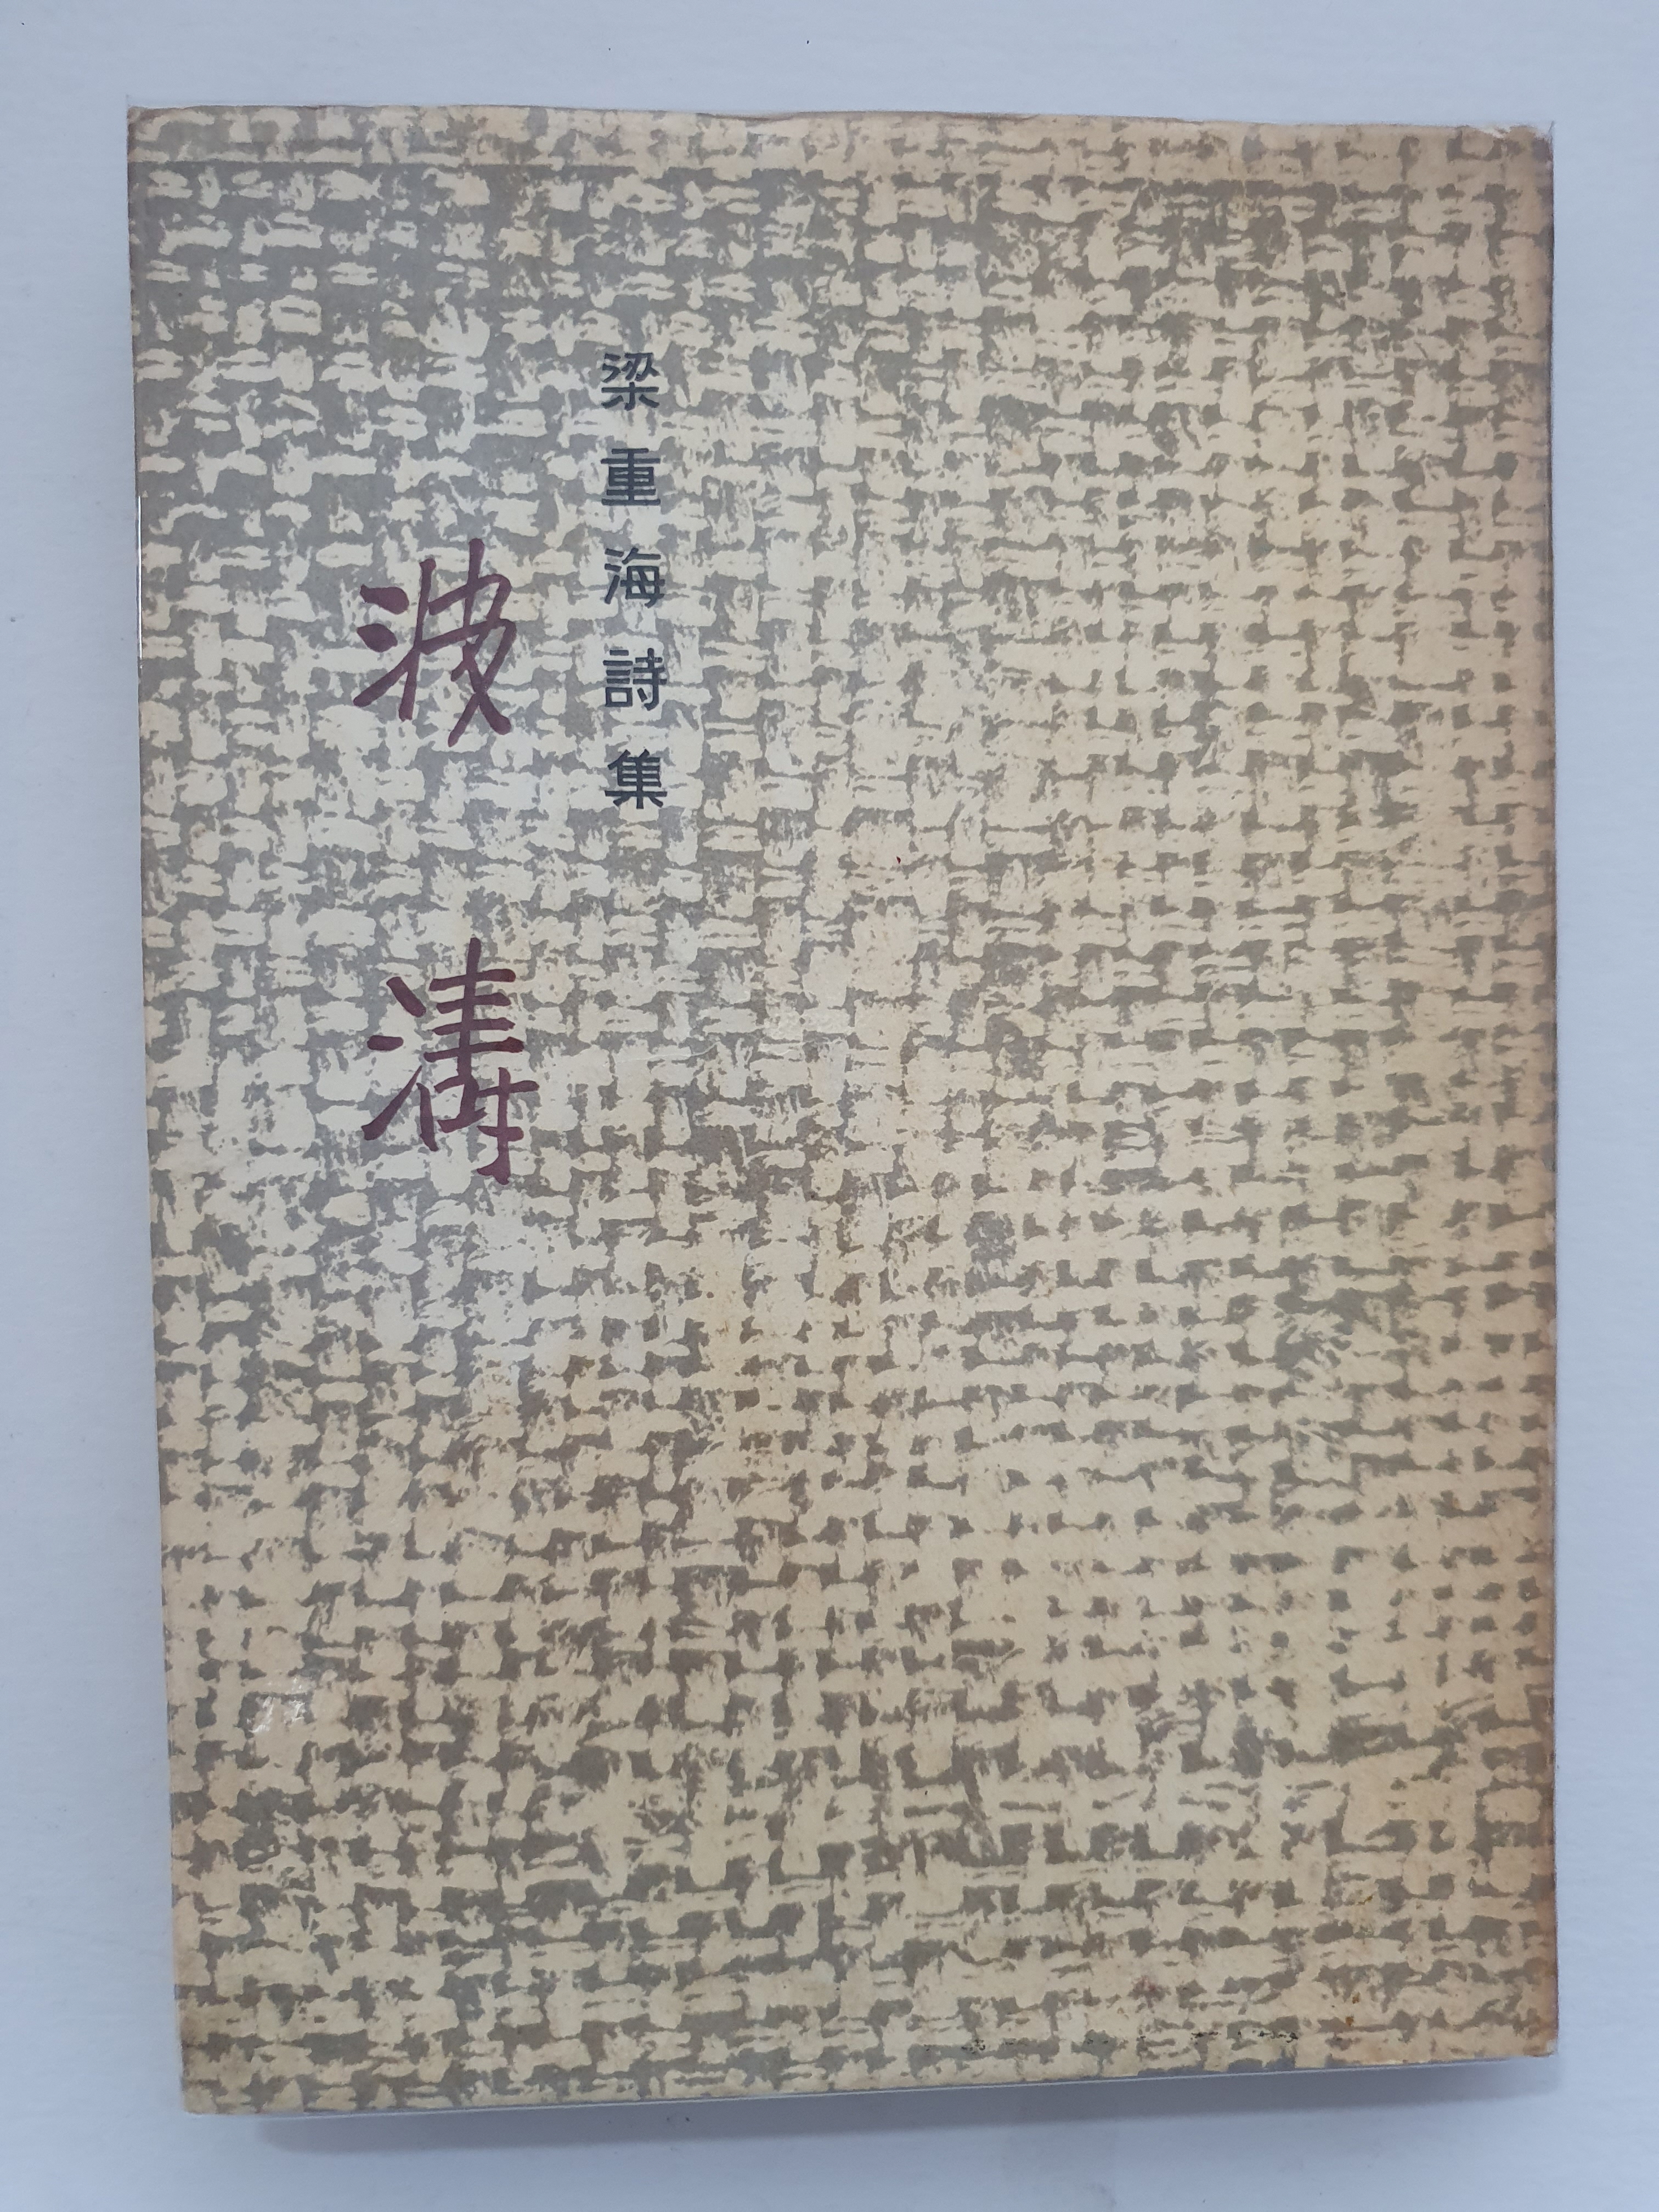 梁重海詩集
波濤